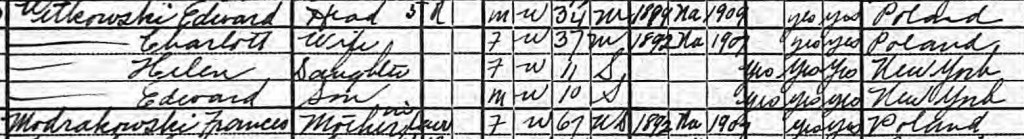 Witkowski Edward Head R M W 34 M Na 1909 yes yes Poland
—— Charlott Wife F W 37 M 1892 Na 1909 yes yes Poland
—— Helen Daughter F W 11 S yes yes yes New York
—— Edward Son M W 10 S yes yes yes New York
Modrakowski Frances Mother in law F W 67 Wd 1892 Na 1909 yes yes Poland